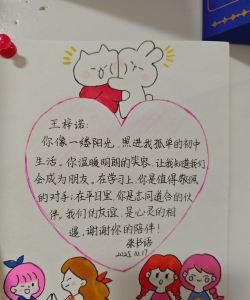 王梓诺:
你像一缕阳光,照进我孤单的初中
生活。你温暖明朗的笑容,让我知道我们
会成为朋友。在学习上,你是值得敬佩
的对手;在平日里,你是志同道合的伙
伴。我们的友谊,是心灵的相
遇,谢谢你的陪伴!
2025.10.17